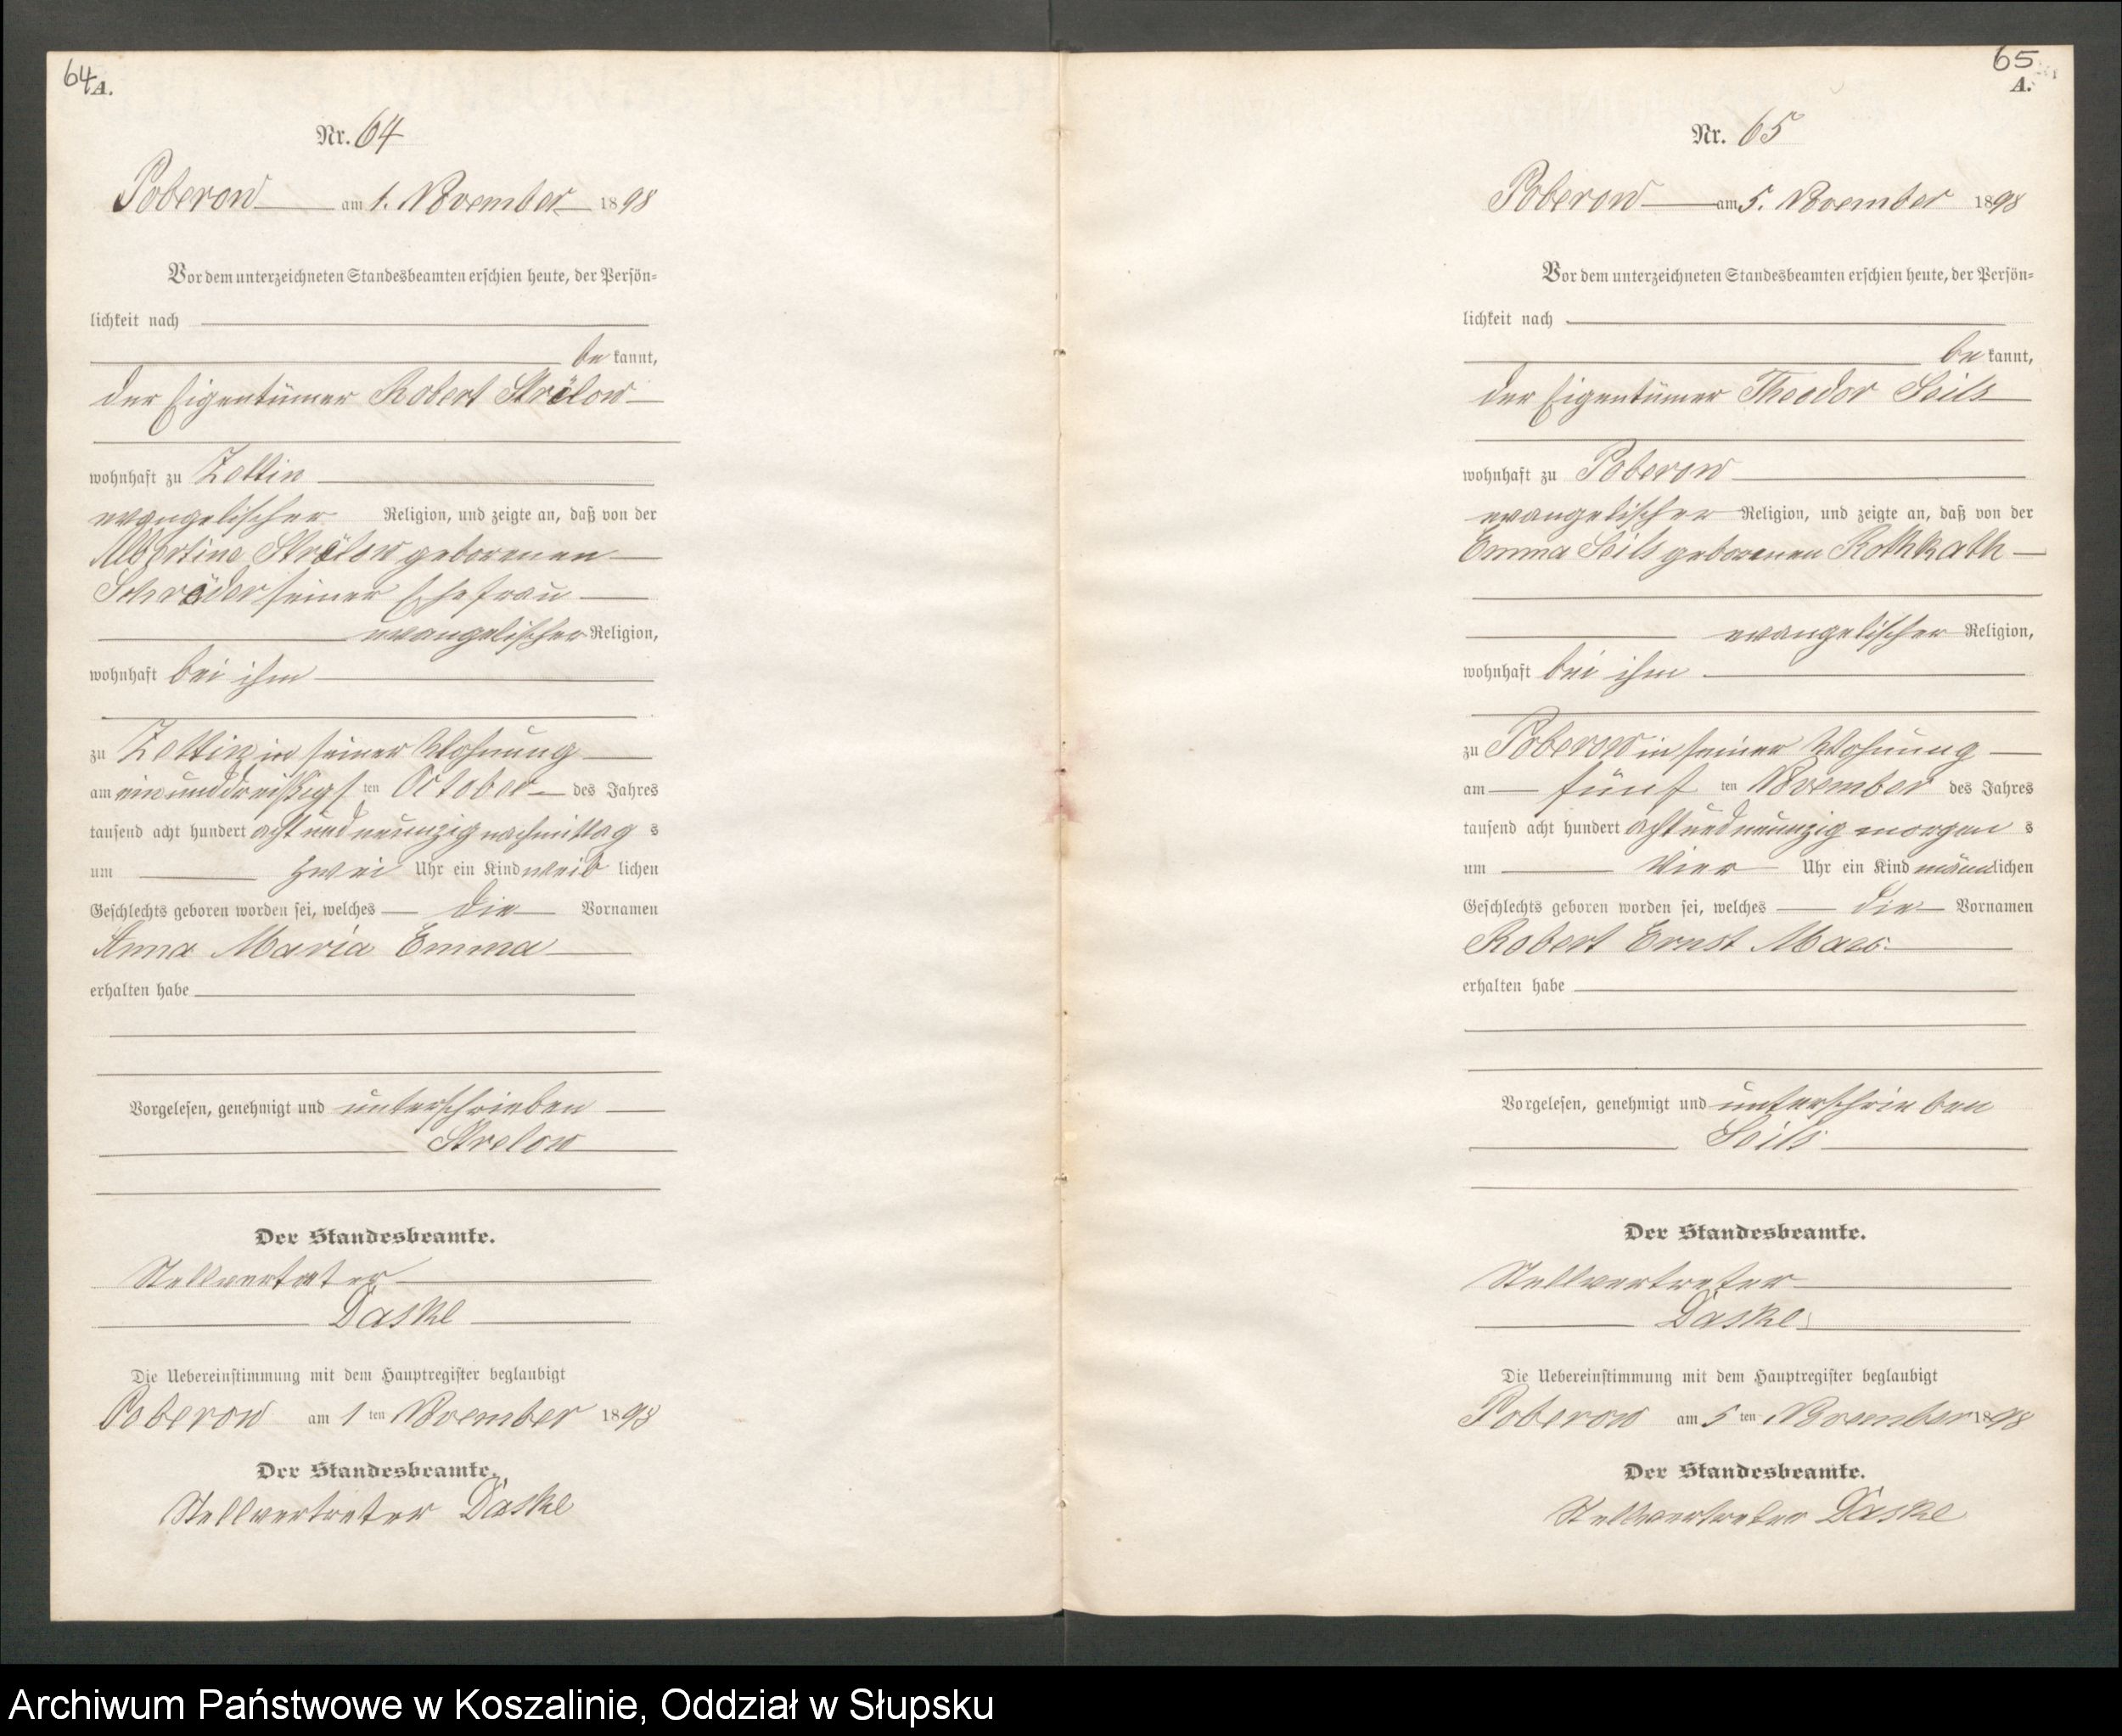 64
A.
Nr. 64
Poberow am 1. November 1898
Vor dem unterzeichneten Standesbeamten erschien heute, der Persön=
lichkeit nach
be kannt,
der Eigentümer Robert Strelow
wohnhaft zu Zettin
evangelischer Religion, und zeigte an, daß von der
Albertine Strelow geborenen
Schröder seiner Ehefrau
evangelischer Religion,
wohnhaft bei ihm
zu Zettin in seiner Wohnung
am einunddreißigsten October des Jahres
tausend acht hundert acht und neunzig nachmittag s
um zwei Uhr ein Kind weib lichen
Geschlechts geboren worden sei, welches die Vornamen
Anna Maria Emma
erhalten habe
Vorgelesen, genehmigt und unterschrieben
Strelow
Der Standesbeamte.
Stellvertreter
Daske
Die Uebereinstimmung mit dem Hauptregister beglaubigt
Poberow am 1 ten November 1898
Der Standesbeamte.
Stellvertreter Daske
65
A.
Nr. 65
Poberow am 5. November 1898
Vor dem unterzeichneten Standesbeamten erschien heute, der Persön=
lichkeit nach
be kannt,
der Eigentümer Theodor Seils
wohnhaft zu Poberow
evangelischer Religion, und zeigte an, daß von der
Emma Seils geborenen
evangelischer Religion,
wohnhaft bei ihm
zu Poberow in seiner Wohnung
am fünf ten November des Jahres
tausend acht hundert acht und neunzig morgen s
um Vier Uhr ein Kind männlichen
Geschlechts geboren worden sei, welches die Vornamen
Robert Ernst
erhalten habe
Vorgelesen, genehmigt und unterschrieben
Seils
Der Standesbeamte.
Stellvertreter
Daske
Die Uebereinstimmung mit dem Hauptregister beglaubigt
Poberow am 5 ten November 1898
Der Standesbeamte.
Stellvertreter Daske
Archiwum Państwowe w Koszalinie, Oddział w Słupsku